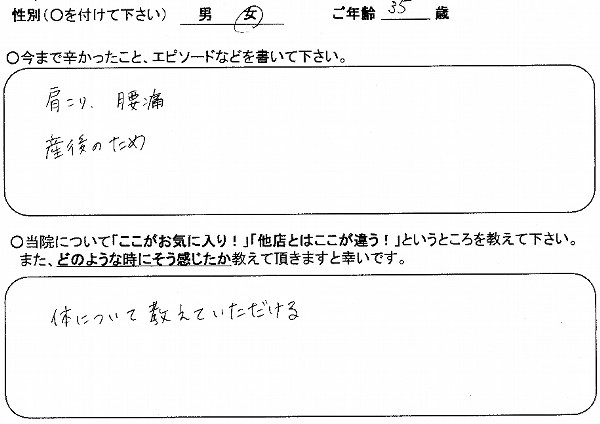 性別(〇を付けて下さい) 男 女 ご年齢 35 歳
〇今まで辛かったこと、エピソードなどを書いて下さい。
肩こり、腰痛
産後のため
〇当院について「ここがお気に入り!」「他店とはここが違う!」というところを教えて下さい。
また、どのような時にそう感じたか教えて頂きますと幸いです。
体について教えていただける